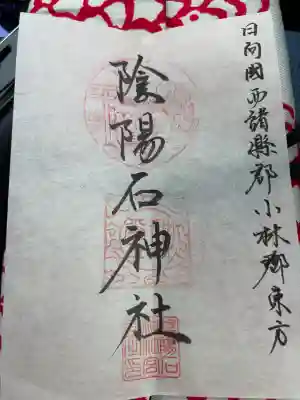 日向國西諸縣郡小林鄉東方
陰陽石神社